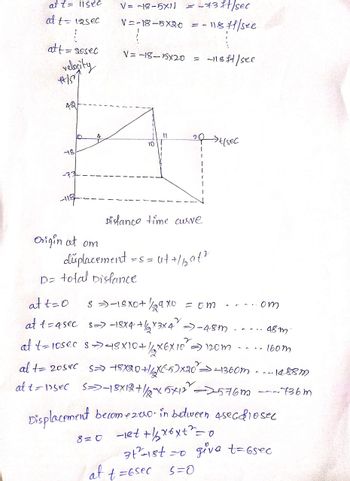 at t = 11sec V = -18-5×11 = -73 ft/sec
at t = 12sec V = -18-5×20 = -118 ft/sec
at t = 20sec V = -18-15×20 = -118 ft/sec
velocity
ft/s
42
0 4 10 11 20 → t/sec
-18
-73
-118
Distance time curve
Origin at 0m
displacement = s = ut + 1/2 at²
D = total Distance
at t=0 s ⇒ -18×0 + 1/2 9×0 = 0m .... 0m
at t=4sec s ⇒ -18×4 + 1/2×3×4² ⇒ -48m ..... 48m
at t = 10sec s ⇒ -18×10 + 1/2×6×10² ⇒ 120m .... 160m
at t = 20sec s ⇒ -18×20 + 1/2×(-5)×20² ⇒ -1360m .... 1488m
at t = 12sec s ⇒ -18×12 + 1/2×-5×12² ⇒ -576m .....736m
Displacement become zero in between 4sec & 10sec
s = 0 -18t + 1/2×6×t² = 0
3t²-18t = 0 give t = 6sec
at t = 6sec s = 0